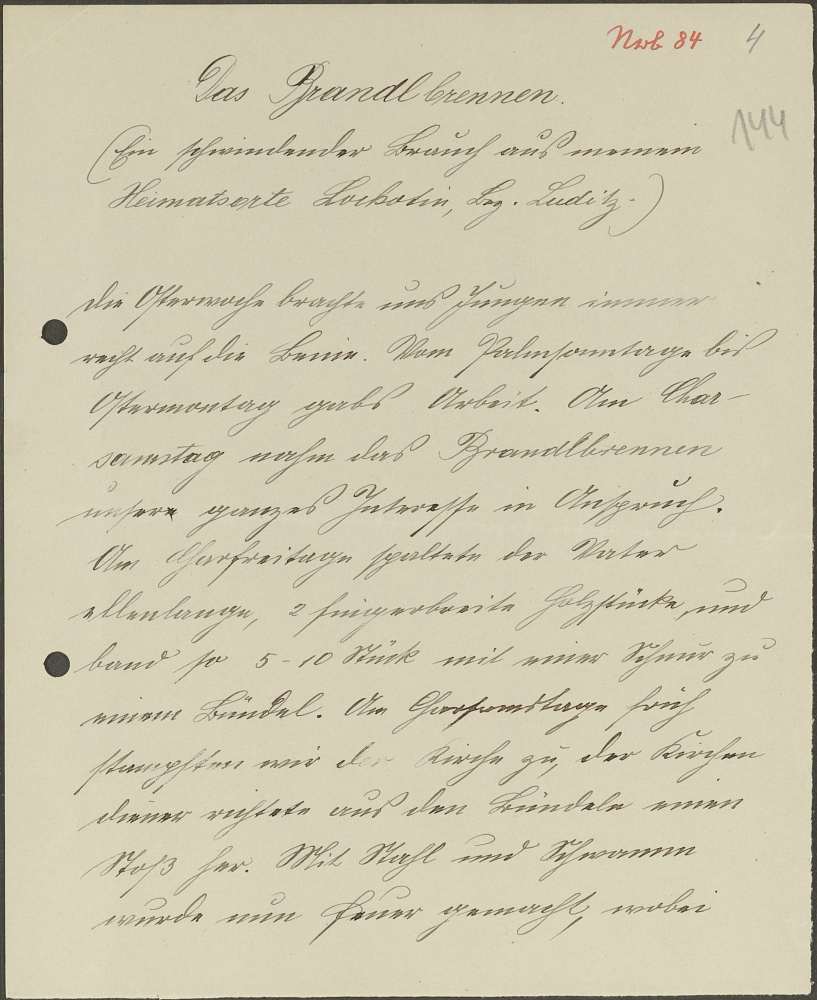 Nrb 84 4
Das Brandlbrennen.
144
(Ein schwindender Brauch aus meinem
Heimatsorte Lockotin, Bez. Luditz.)
Die Osterwoche brachte uns Jungen immer
recht auf die Beine. Vom Palmsonntage bis
Ostermontag gabs Arbeit. Am Char-
samstag nahm das Brandlbrennen
unser ganzes Interesse in Anspruch.
Am Charfreitage spaltete der Vater
ellenlange, 2 fingerbreite Holzstücke, und
band so 5-10 Stück mit einer Schnur zu
einem Bündel. Am Charsamstage früh
stampften wir der Kirche zu, der Kirchen
diener richtete aus den Bündeln einen
Stoß her. Mit Stahl und Schwamm
wurde nun Feuer gemacht, wobei